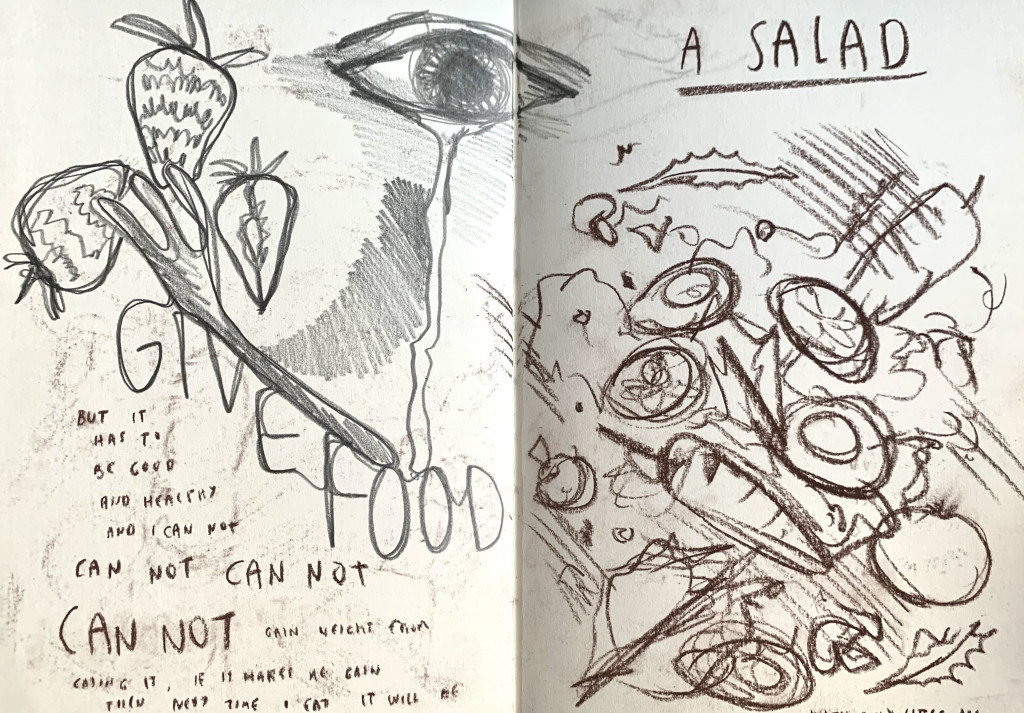 GIVE FOOD
BUT IT
HAS TO
BE GOOD
AND HEALTHY
AND I CAN NOT
CAN NOT CAN NOT
CAN NOT GAIN WEIGHT FROM
EATING IT, IF IT MAKES ME GAIN
THEN NEXT TIME I EAT IT WILL BE
A SALAD